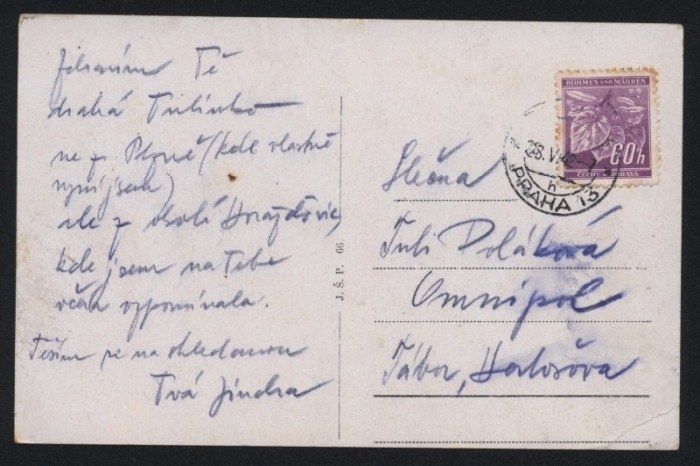 Zdravím Tě
drahá Tulinko
ne z Plzně (kde vlastně
nyní jsem)
ale z okolí Horažďovic,
kde jsem na Tebe
včera vzpomínala.
Těším se na shledanou
Tvá Jindra
J.Š.P. 66.
BÖHMEN UND MÄHREN
60h
ČECHY A MORAVA
28.V.42
h
PRAHA 13
Slečna
Tuli Poláková
Omnipol
Tábor,